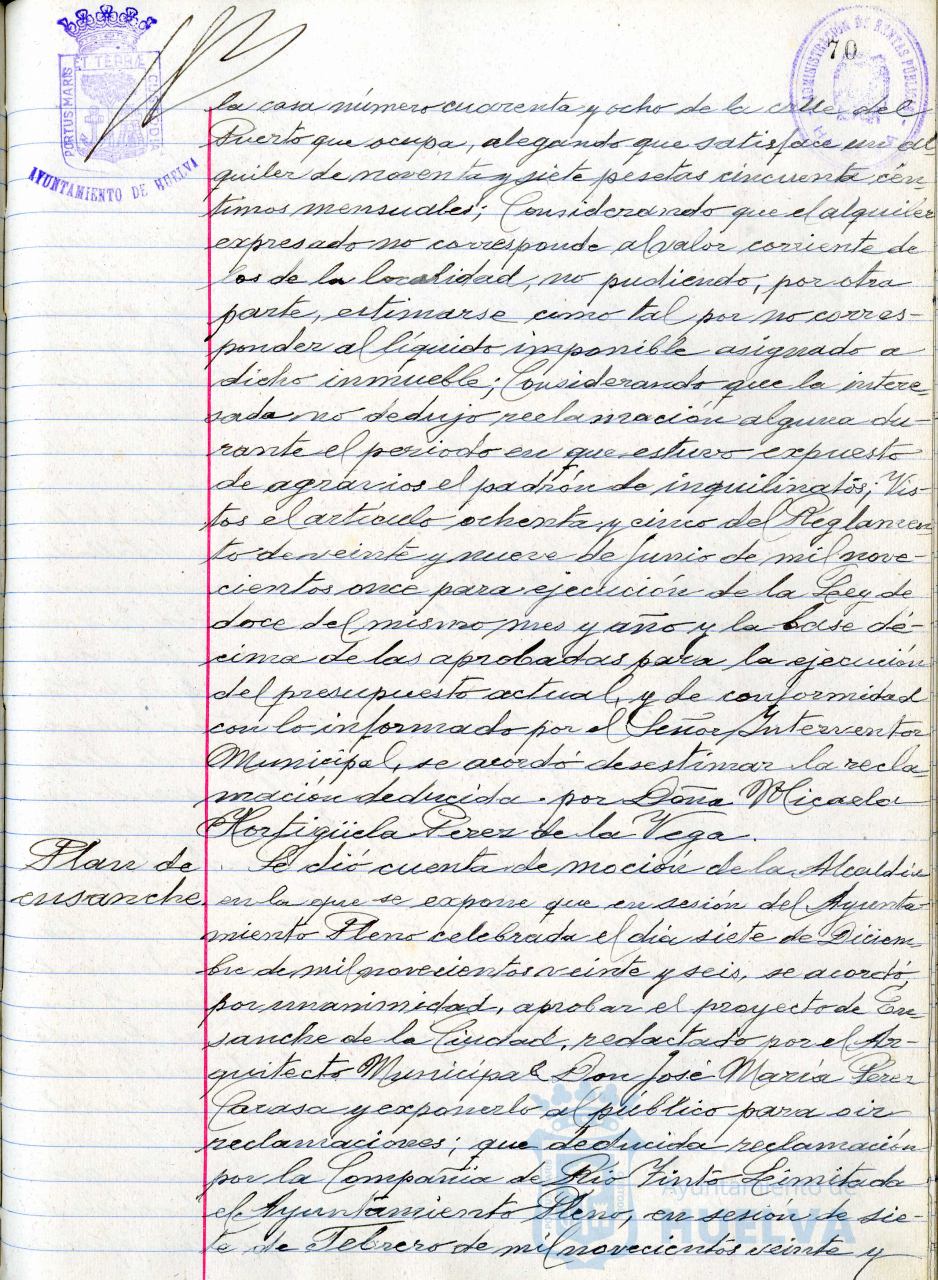 70
ET TERRÆ
PORTUS MARIS
CUSTODIA
AYUNTAMIENTO DE HUELVA
ADMINISTRACION DE RENTAS PUBLICAS
la casa número cuarenta y ocho de la calle del
Puerto que ocupa, alegando que satisface un al-
quiler de noventa y siete pesetas cincuenta cén-
timos mensuales; Considerando que el alquiler
expresado no corresponde al valor corriente de
los de la localidad, no pudiendo, por otra
parte, estimarse como tal por no corres-
ponder al líquido imponible asignado a
dicho inmueble; Considerando que la intere-
sada no dedujo reclamación alguna du-
rante el periodo en que estuvo expuesto
de agravios el padrón de inquilinatos; Vis-
tos el artículo ochenta y cinco del Reglamen-
to de veinte y nueve de Junio de mil nove-
cientos once para ejecución de la Ley de
doce del mismo mes y año y la base dé-
cima de las aprobadas para la ejecución
del presupuesto actual, y de conformidad
con lo informado por el Señor Interventor
Municipal, se acordó desestimar la recla-
mación deducida por Doña Micaela
Hortigüela Pérez de la Vega.
Plan de
ensanche.
Se dió cuenta de moción de la Alcaldía
en la que se expone que en sesión del Ayunta-
miento Pleno celebrada el día siete de Diciem-
bre de mil novecientos veinte y seis, se acordó,
por unanimidad, aprobar el proyecto de En-
sanche de la Ciudad, redactado por el Ar-
quitecto Municipal Don José María Pérez
Carasa y exponerlo al público para oir
reclamaciones; que deducida reclamación
por la Compañia de Río Tinto Limitada
el Ayuntamiento Pleno, en sesion de sie-
te de Febrero de mil novecientos veinte y
Ayuntamiento de
HUELVA